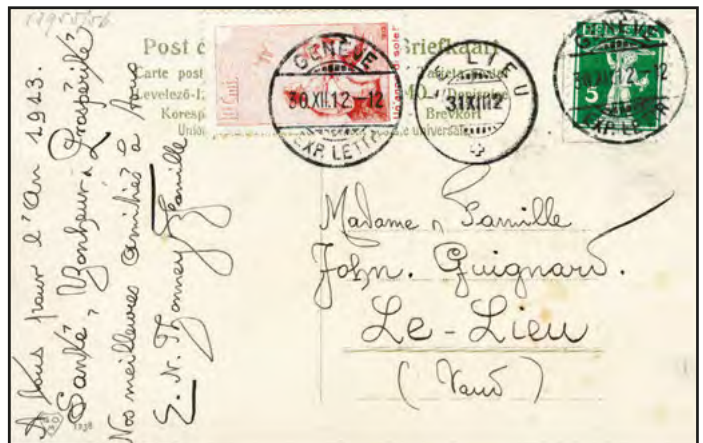 Post
Briefkaart
Carte post
Levelező-
Koresp
Brevkort
Union
e universelle
GENÈVE
30.XII.12-12
EXP. LETTR.
LE LIEU
31.XII.12
GENÈVE
30.XII.12-12
EXP. LETTR.
5
A vous pour l'An 1913.
Santé, Bonheur & Prospérité
Nos meilleures amitiés à tous
Famille
Madame & Famille
John. Guignard.
Le-Lieu
(Vaud)